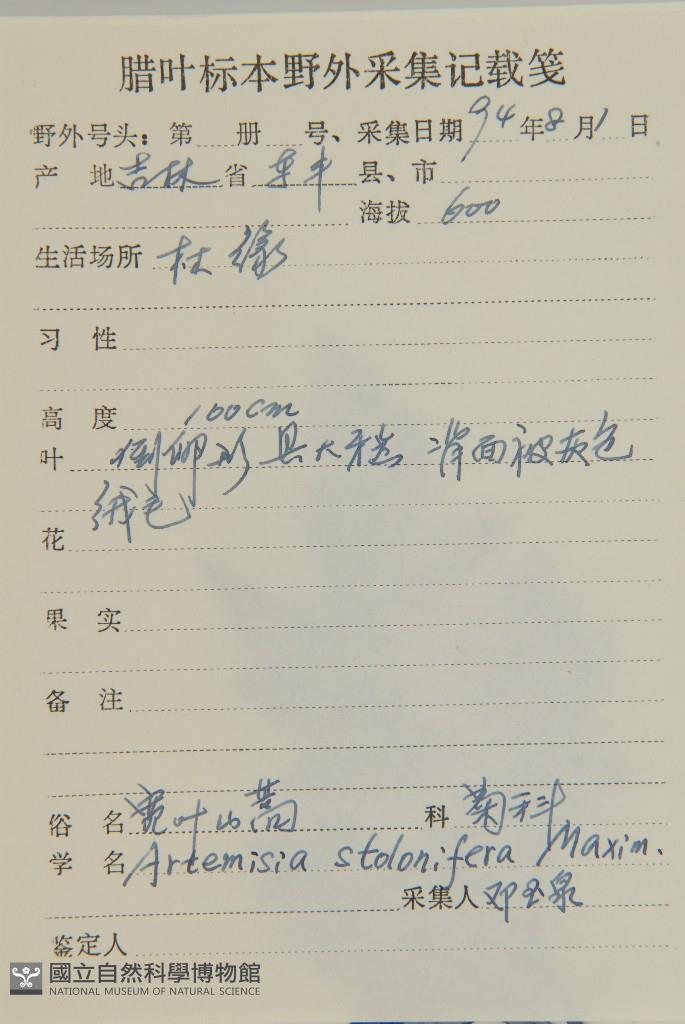 腊叶标本野外采集记载笺
野外号头：第 册 号、采集日期 94 年 8 月 1 日
产 地 吉林 省 东丰 县、市
海拔 600
生活场所 林缘
习 性
高 度 100cm
叶 倒卵形 具大牙齿 背面被灰色
绒毛
花
果 实
备 注
俗 名 宽叶山蒿 科 菊科
学 名 Artemisia stolonifera Maxim.
采集人 邓玉泉
鉴定人
國立自然科學博物館
NATIONAL MUSEUM OF NATURAL SCIENCE